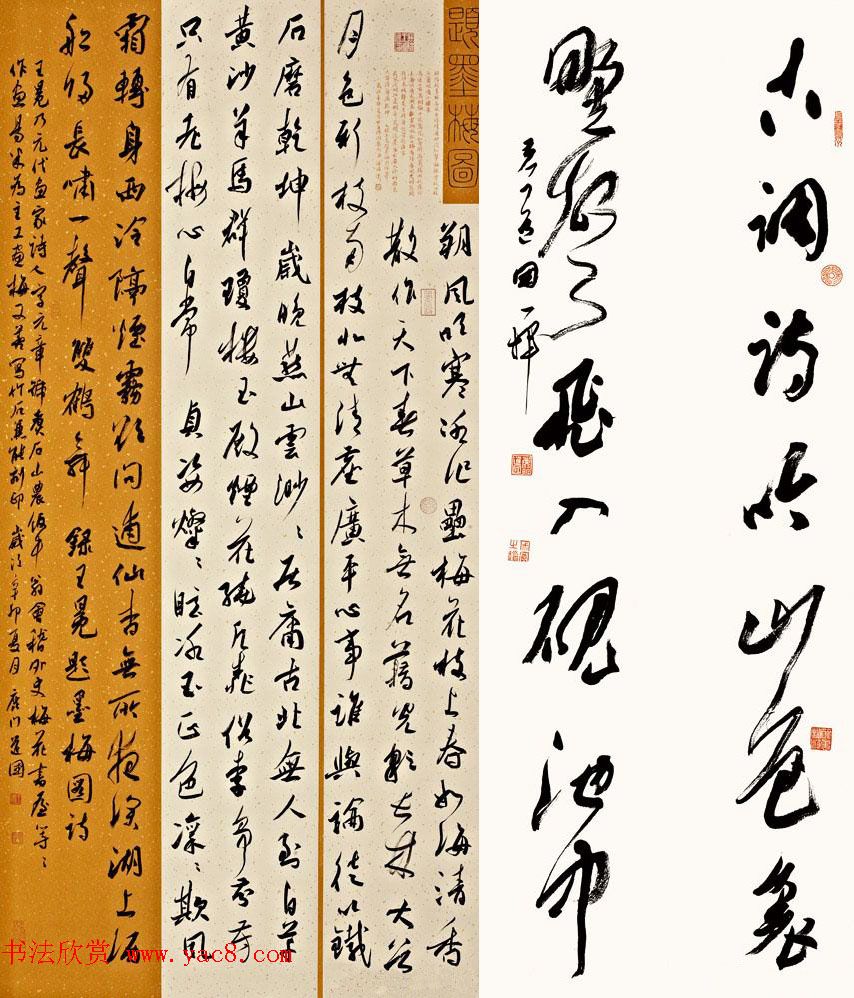 古调诗吟山色裏
野聲飞入硯池中
題墨梅圖
朔風吹寒冰作壘梅花枝上春如海清香
散作天下春草木無名藉光彩長林大谷
月色新枝南枝北無清塵廣平心事誰與論徒以鐵
石磨乾坤 歲晚燕山雲渺々居庸古北無人到白草
黃沙羊馬群瓊樓玉殿煙花繞凡桃俗李爭芬芳
只有老梅心自常 貞姿燦々眩冰玉正色凜々欺風
霜轉身西泠隔煙霧欲問逋仙杳無所夜深湖上酒
船歸長嘯一聲雙鶴舞 錄王冕題墨梅圖詩
王冕乃元代畫家詩人字元章號煮石山農飯牛翁會稽外史梅花書屋等々
作畫易米為主工畫梅又善寫竹石兼能刻印 歲次辛卯夏月 道國
书法欣赏 www.yac8.com